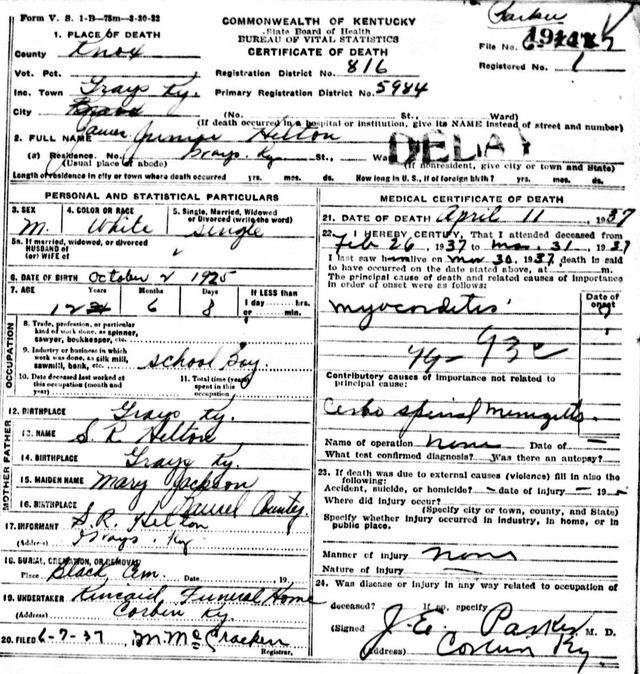 Form V. S. 1-B—75m—3-30-32
COMMONWEALTH OF KENTUCKY
State Board of Health
BUREAU OF VITAL STATISTICS
CERTIFICATE OF DEATH
Parker
File No.
Registered No. 1
1. PLACE OF DEATH
County Knox
Registration District No. 816
Vot. Pct.
Inc. Town Grays Ky.
Primary Registration District No. 5984
City
(No. St., Ward)
(If death occurred in a hospital or institution, give its NAME instead of street and number)
2. FULL NAME James Junior Helton
DELAY
(a) Residence. No. Grays, Ky St., Ward
(Usual place of abode) (If nonresident, give city or town and State)
Length of residence in city or town where death occurred yrs. mos. ds. How long in U. S., if of foreign birth? yrs. mos. ds.
PERSONAL AND STATISTICAL PARTICULARS
3. SEX M.
4. COLOR OR RACE White
5. Single, Married, Widowed or Divorced (write the word) single
5a. If married, widowed, or divorced
HUSBAND of
(or) WIFE of
6. DATE OF BIRTH October 2 1925
7. AGE Years Months 6 Days 8 IF LESS than 1 day hrs. or min.
OCCUPATION
8. Trade, profession, or particular kind of work done, as spinner, sawyer, bookkeeper, etc.
9. Industry or business in which work was done, as silk mill, sawmill, bank, etc. School Boy
10. Date deceased last worked at this occupation (month and year)
11. Total time (years) spent in this occupation
12. BIRTHPLACE Grays Ky.
FATHER
13. NAME S. R. Helton
14. BIRTHPLACE Grays Ky.
MOTHER
15. MAIDEN NAME Mary Jackson
16. BIRTHPLACE Laurel County
17. INFORMANT S. R. Helton
(Address) Grays, Ky
18. BURIAL, CREMATION, OR REMOVAL
Place Black Cem. Date 19
19. UNDERTAKER Kincaid Funeral Home
(Address) Corbin Ky.
20. FILED 6-7-37 M. McCracken
Registrar.
MEDICAL CERTIFICATE OF DEATH
21. DATE OF DEATH April 11, 1937
22. I HEREBY CERTIFY, That I attended deceased from
Feb 26, 1937 to Mar. 31, 1937
I last saw him alive on Mar 30, 1937 death is said
to have occurred on the date stated above, at m.
The principal cause of death and related causes of importance
in order of onset were as follows:
Date of onset
myocorditis
93c
Contributory causes of importance not related to
principal cause:
Cerbo spinal Meningitis.
Name of operation none Date of —
What test confirmed diagnosis? Was there an autopsy?
23. If death was due to external causes (violence) fill in also the
following:
Accident, suicide, or homicide? — date of injury — 19
Where did injury occur?
(Specify city or town, county, and State)
Specify whether injury occurred in industry, in home, or in
public place.
Manner of injury none
Nature of injury
24. Was disease or injury in any way related to occupation of
deceased? If so, specify
(Signed J. E. Parker M. D.
(Address) Corbin Ky.